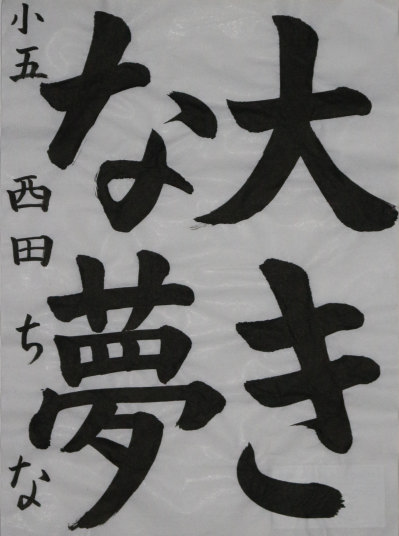 大き
な夢
小五 西田ちな